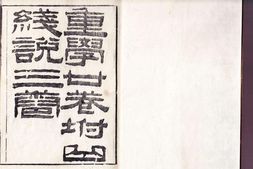 重學廿卷坿曲
綫說三